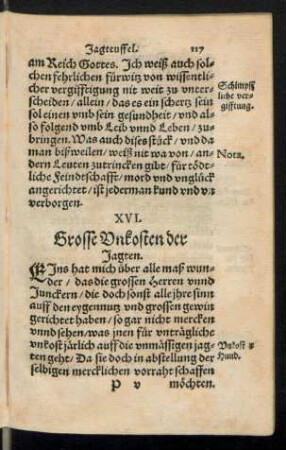 Jagteuffel. 117
am Reich Gottes. Ich weiß auch sol-
chen fehrlichen fürwitz von wissentli-
cher vergifftigung nit weit zu vnter-
scheiden / allein / das es ein schertz sein
sol einen vmb sein gesundheit / vnd al-
so folgend vmb Leib vnnd Leben / zu-
bringen. Was auch dises stück / vnd da
man bißweilen / weiß nit wa von / an-
dern Leuten zutrincken gibt / für tödt-
liche Feindtschafft / mord vnd vnglück
angerichtet / ist jederman kund vnd v:
verborgen.
Schimpff
liche ver-
gifftung.
Nota.
XVI.
Grosse Vnkosten der
Jagten.
EIns hat mich über alle maß wun-
der / das die grossen Herren vnnd
Junckern / die doch sonst alle jhre sinn
auff den eygennutz vnd grossen gewin
gerichtet haben / so gar nicht mercken
vnnd sehen / was jnen für vnträgliche
vnkost järlich auff die vnmässigen jag-
ten geht / Da sie doch in abstellung der
selbigen mercklichen vorraht schaffen
Vnkost
Hund.
P v möchten.